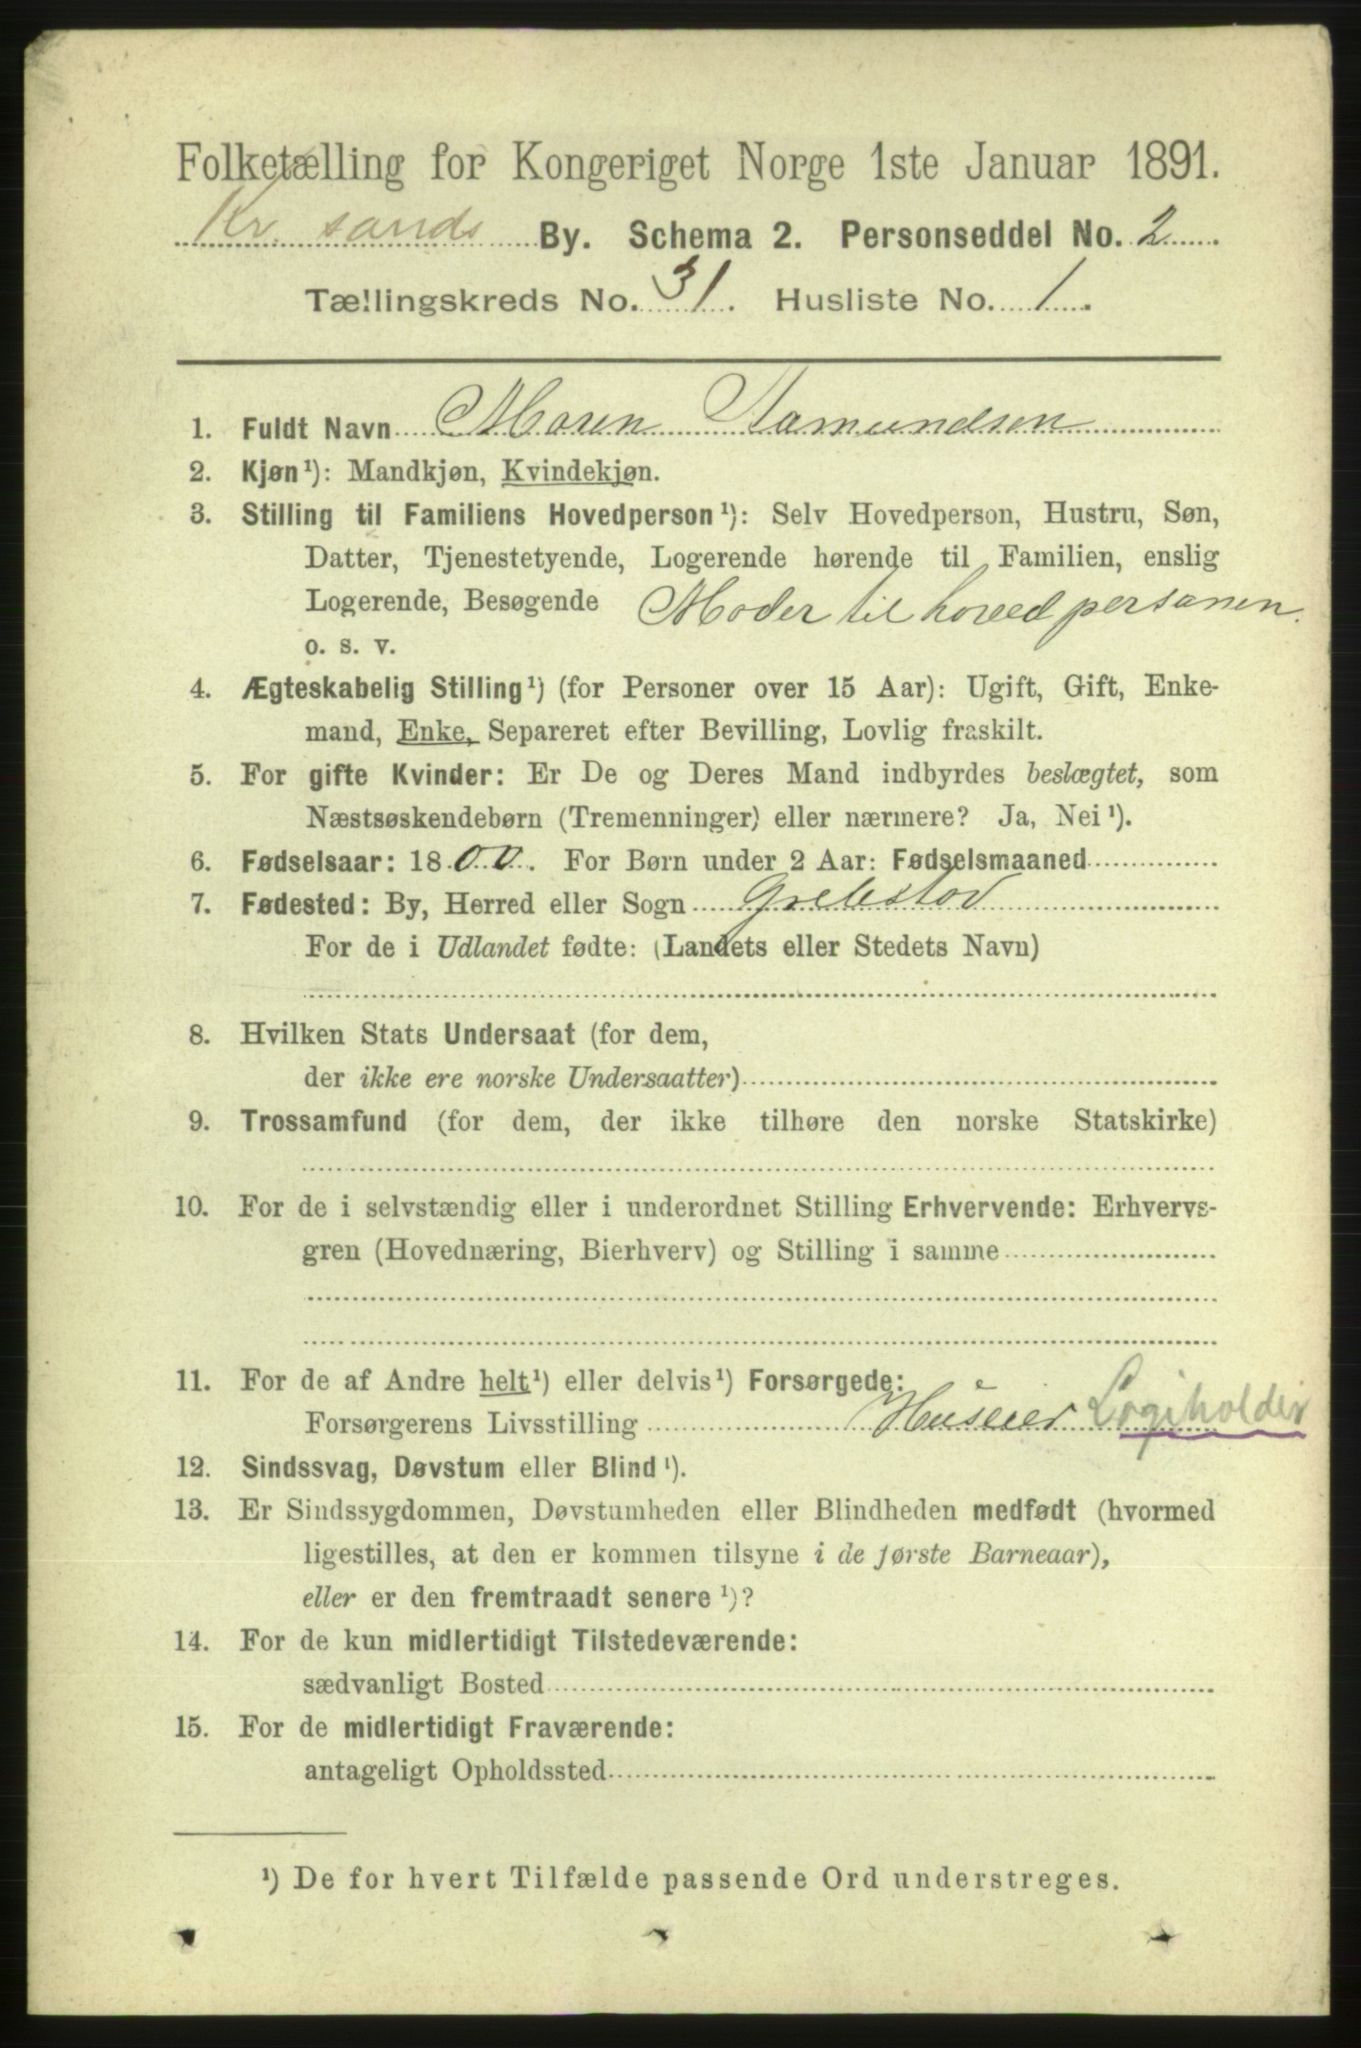 Folketælling for Kongeriget Norge 1ste Januar 1891.
Kr. sands By. Schema 2. Personseddel No. 2
Tællingskreds No. 31. Husliste No. 1.
1. Fuldt Navn Maren Aamundsen
2. Kjøn¹): Mandkjøn, Kvindekjøn.
3. Stilling til Familiens Hovedperson¹): Selv Hovedperson, Hustru, Søn,
Datter, Tjenestetyende, Logerende hørende til Familien, enslig
Logerende, Besøgende Moder til hovedpersonen.
o. s. v.
4. Ægteskabelig Stilling¹) (for Personer over 15 Aar): Ugift, Gift, Enke-
mand, Enke, Separeret efter Bevilling, Lovlig fraskilt.
5. For gifte Kvinder: Er De og Deres Mand indbyrdes beslægtet, som
Næstsøskendebørn (Tremenninger) eller nærmere? Ja, Nei¹).
6. Fødselsaar: 1800. For Børn under 2 Aar: Fødselsmaaned
7. Fødested: By, Herred eller Sogn Grebstad
For de i Udlandet fødte: (Landets eller Stedets Navn)
8. Hvilken Stats Undersaat (for dem,
der ikke ere norske Undersaatter)
9. Trossamfund (for dem, der ikke tilhøre den norske Statskirke)
10. For de i selvstændig eller i underordnet Stilling Erhvervende: Erhvervs-
gren (Hovednæring, Bierhverv) og Stilling i samme
11. For de af Andre helt¹) eller delvis¹) Forsørgede:
Forsørgerens Livsstilling Huseier Logiholder
12. Sindssvag, Døvstum eller Blind¹).
13. Er Sindssygdommen, Døvstumheden eller Blindheden medfødt (hvormed
ligestilles, at den er kommen tilsyne i de første Barneaar),
eller er den fremtraadt senere¹)?
14. For de kun midlertidigt Tilstedeværende:
sædvanligt Bosted
15. For de midlertidigt Fraværende:
antageligt Opholdssted
¹) De for hvert Tilfælde passende Ord understreges.